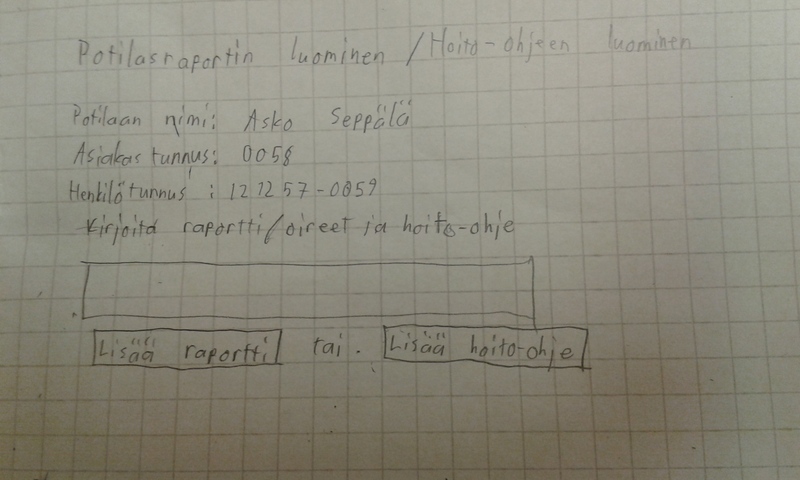 Potilasraportin luominen / Hoito-ohjeen luominen
Potilaan nimi: Asko Seppälä
Asiakastunnus: 0058
Henkilötunnus: 121257-0059
Kirjoita raportti/oireet ja hoito-ohje
Lisää raportti tai. Lisää hoito-ohje